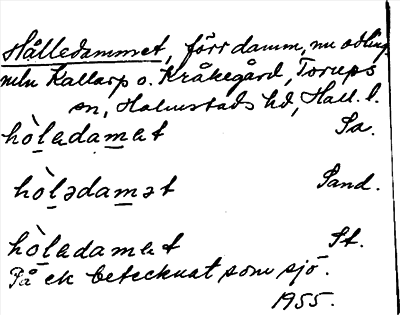 Hålledammet, förr damm, nu odling
meln Kallarp o. Kråkegård, Torups
sn, Halmstads hd, Hall. l.
hòladamat Sa.
hòlədamət Sand.
hòladamat St.
På ek betecknat som sjö.
1955.